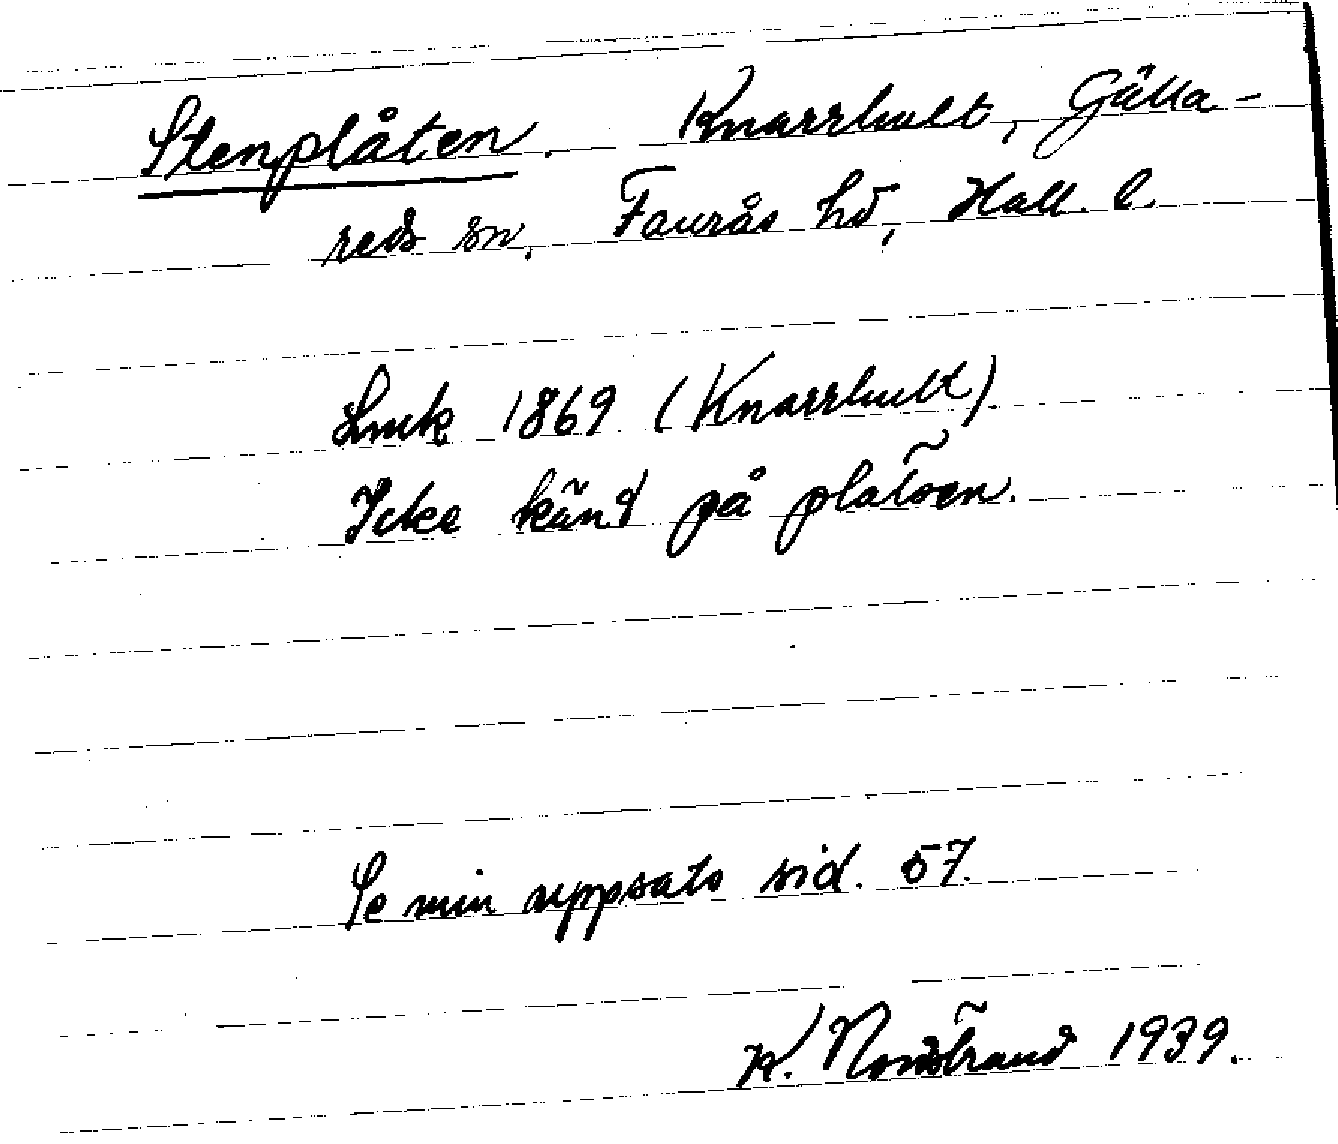 Stenplåten. Knarrhult, Gälla-
reds sn. Faurås hd, Hall. l.
Lmk 1869 (Knarrhult)
Icke känd på platsen.
Se min uppsats sid. 57.
K. Nordstrand 1939.